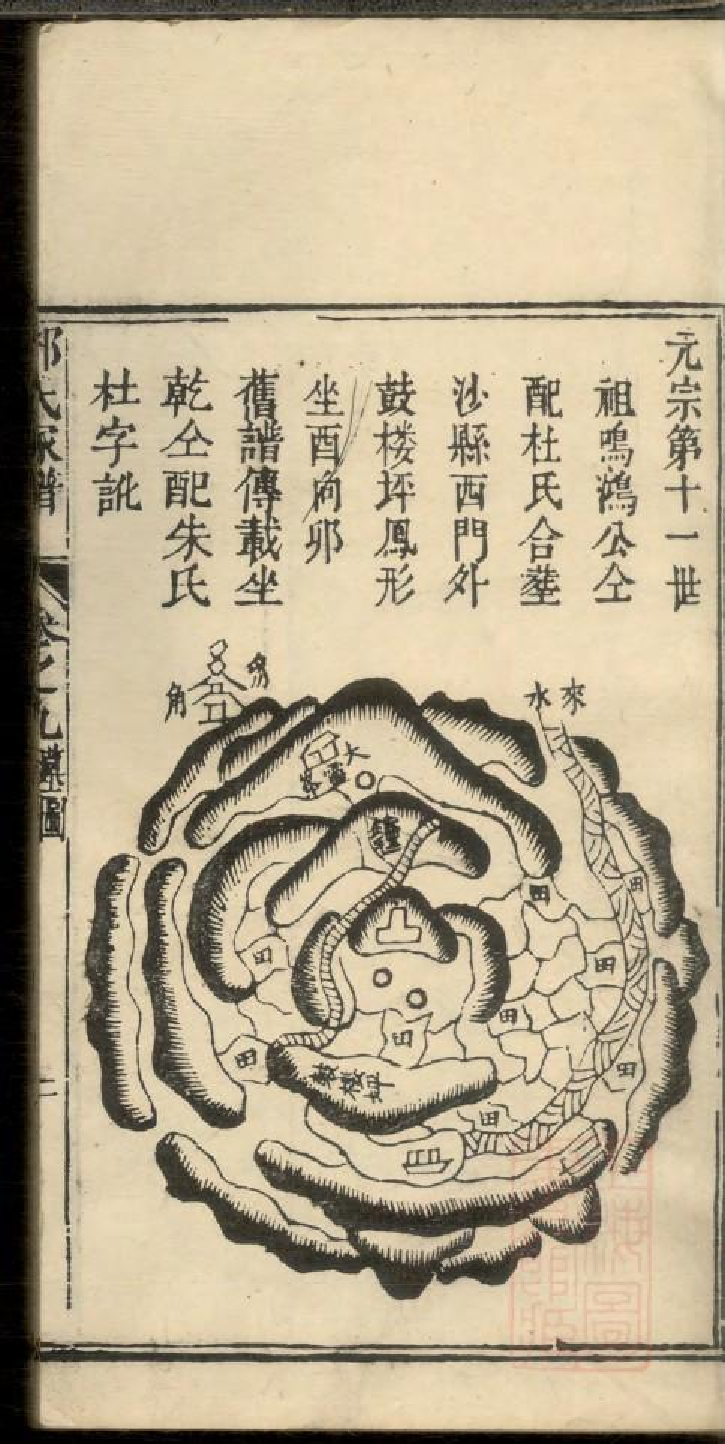 元宗第十一世
祖鳴鴻公仝
配杜氏合塟
沙縣西門外
鼓楼坪鳳形
坐酉向卯
舊譜傳載坐
乾仝配朱氏
杜字訛
來
水
角
大
田
田
田
田
田
田
田
田
鼓楼坪
氏家譜
卷之九
墳圖